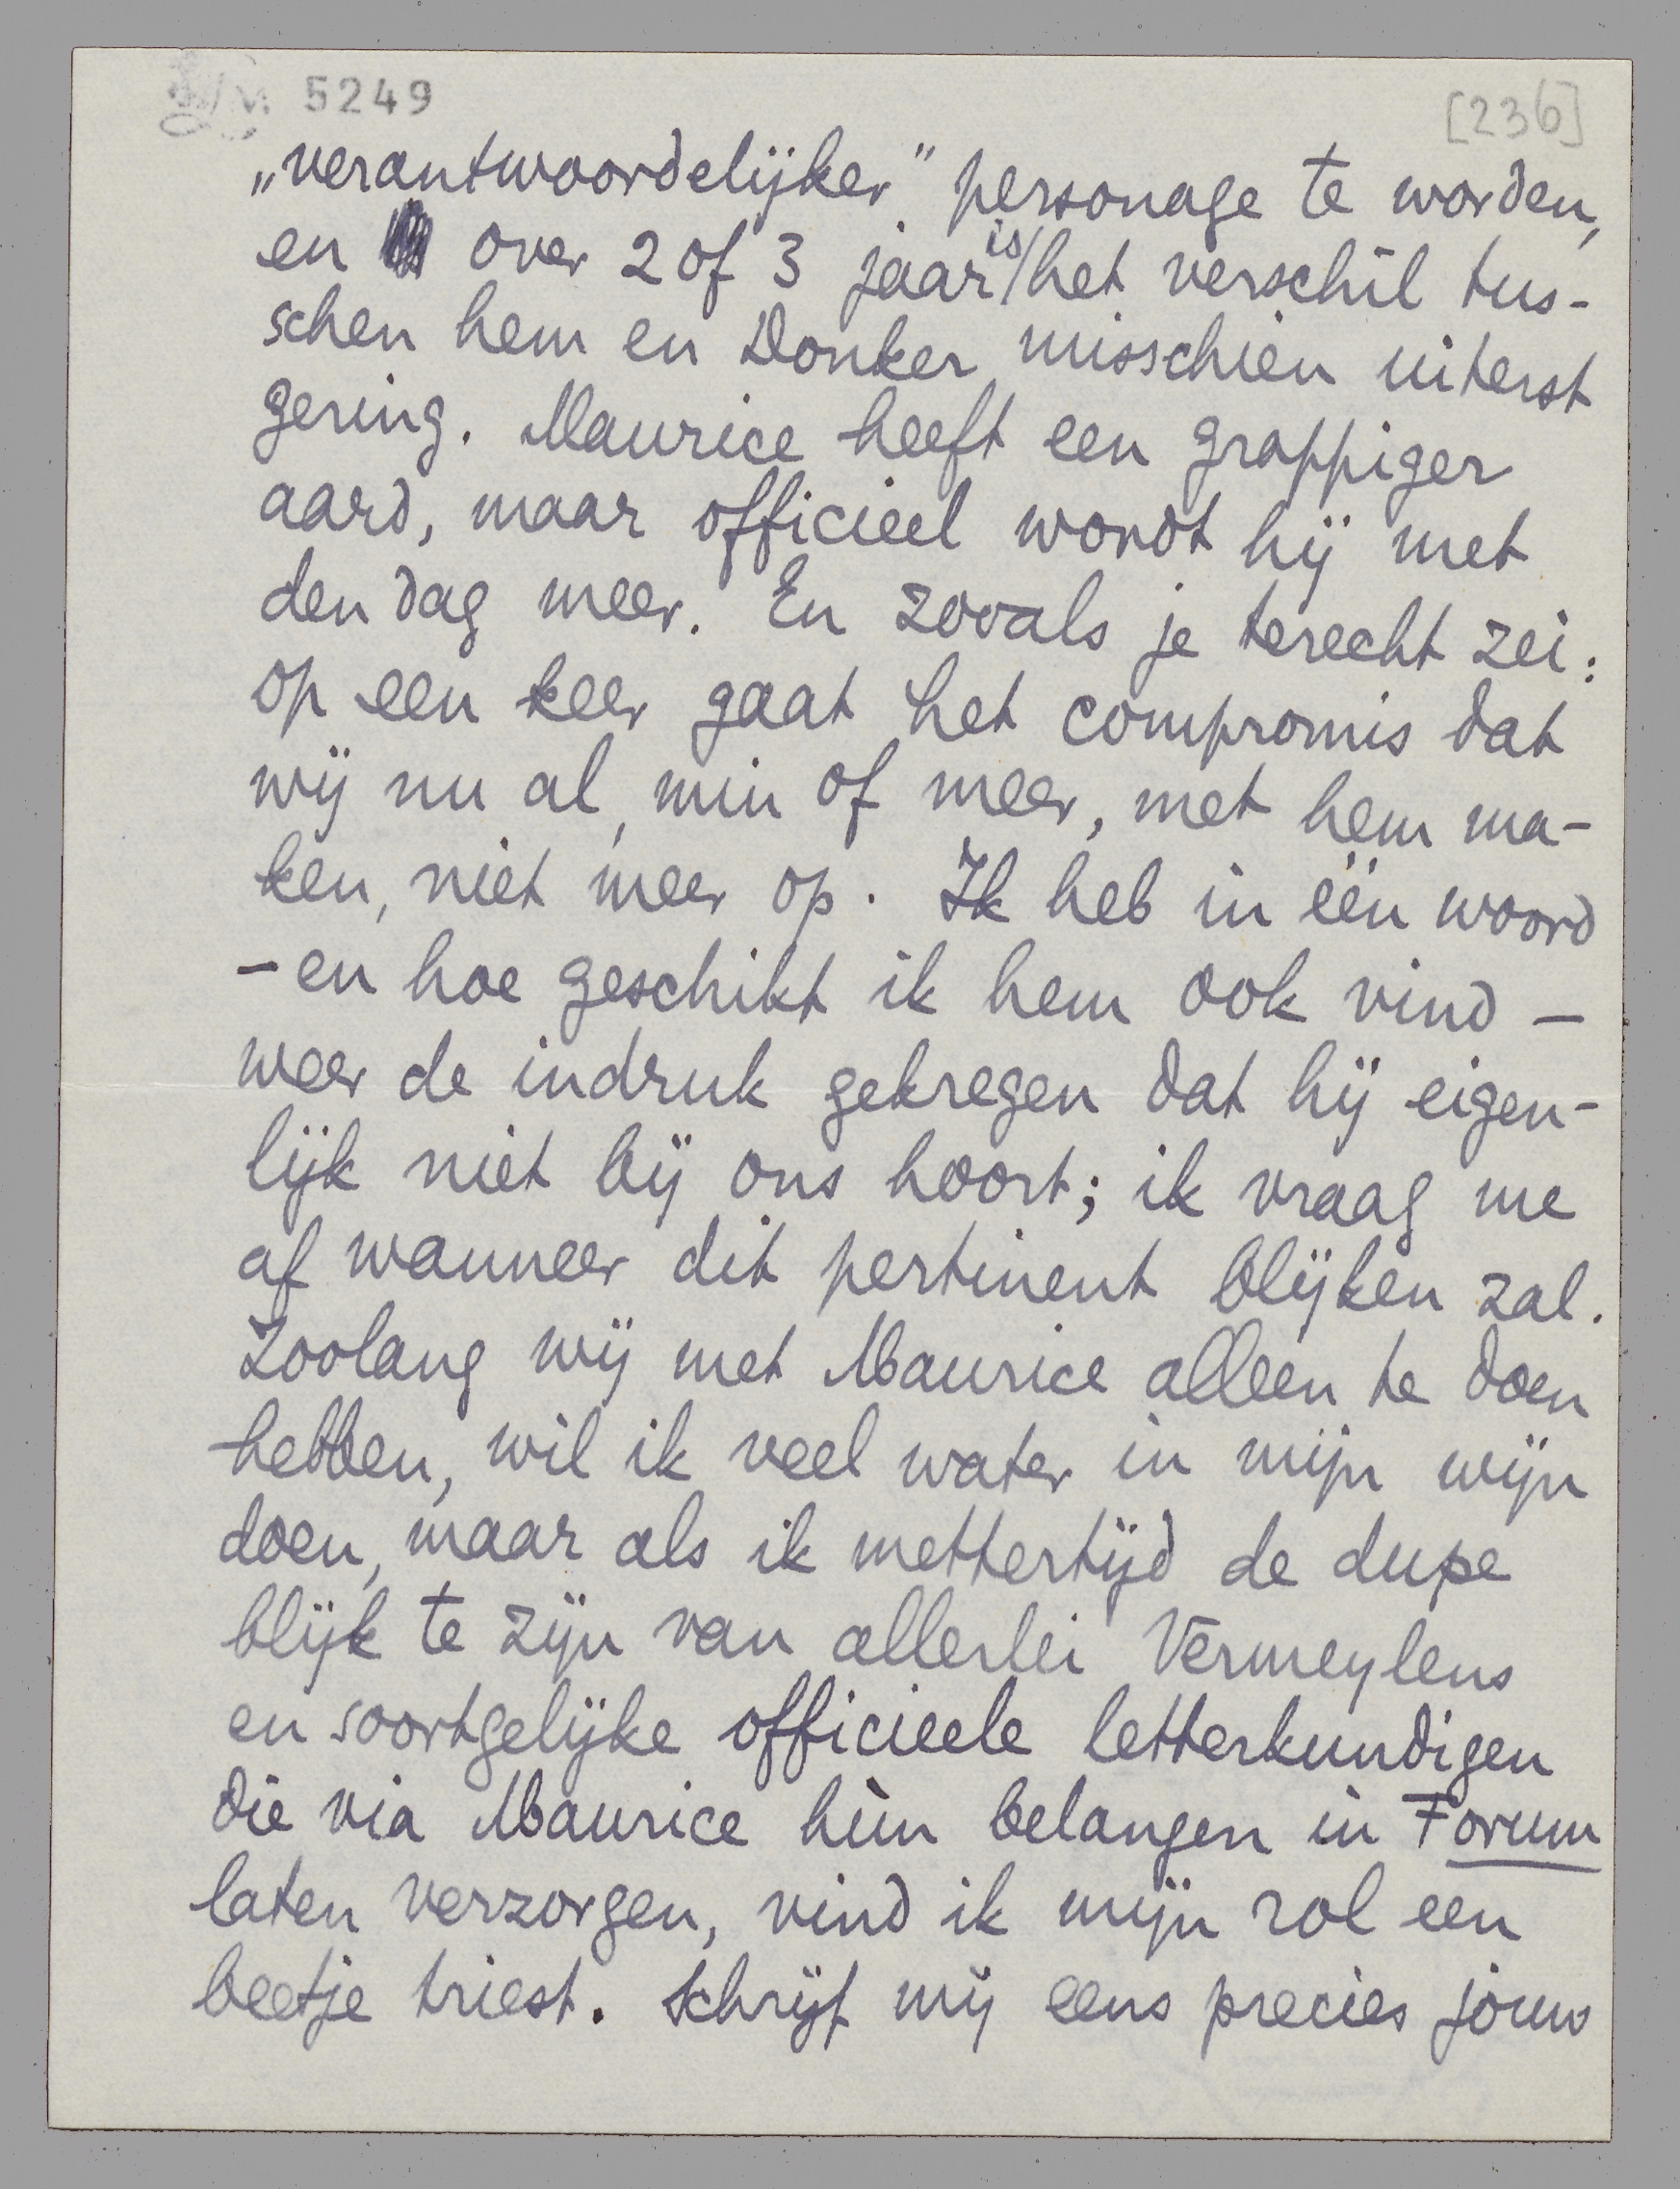 5249
[236]
„verantwoordelijker” personage te worden,
en over 2 of 3 jaar is het verschil tus-
schen hem en Donker misschien uiterst
gering. Maurice heeft een grappiger
aard, maar officieel wordt hij met
den dag meer. En zooals je terecht zei:
op een keer gaat het compromis dat
wij nu al, min of meer, met hem ma-
ken, niet meer op. Ik heb in één woord
– en hoe geschikt ik hem ook vind –
weer de indruk gekregen dat hij eigen-
lijk niet bij ons hoort; ik vraag me
af wanneer dit pertinent blijken zal.
Zoolang wij met Maurice alleen te doen
hebben, wil ik veel water in mijn wijn
doen, maar als ik mettertijd de dupe
blijk te zijn van allerlei Vermeylens
en soortgelijke officieele letterkundigen
die via Maurice hùn belangen in Forum
laten verzorgen, vind ik mijn rol een
beetje triest. Schrijf mij eens precies jouw